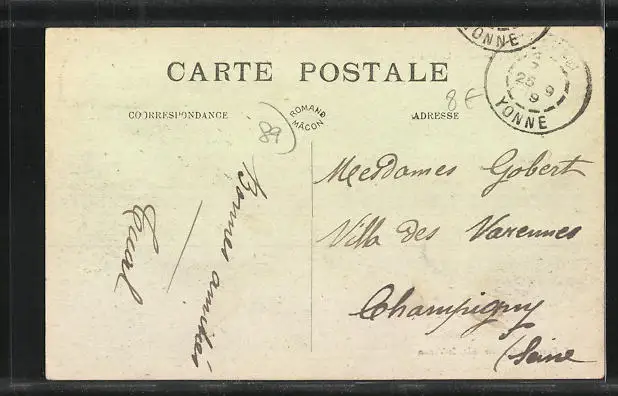 YONNE
CARTE POSTALE
7
25 9
9
YONNE
CORRESPONDANCE
ROMAND
MÂCON
ADRESSE
8 €
89
Mesdames Gobert
Villa des Varennes
Champigny
Seine
Bonnes amitiés